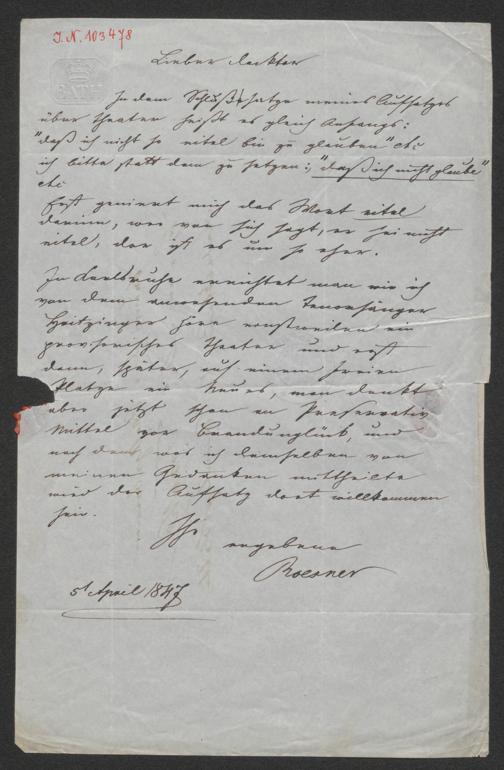 J. N. 103478
BATH
Lieber Doktor
In dem Schlußsatze meines Aufsatzes
über Theater heißt es gleich Anfangs:
"daß ich nicht so eitel bin zu glauben" etc
ich bitte statt dem zu setzen: "daß ich nicht glaube"
etc
Erst genirt mich das Wort eitel
darinn, wer von sich sagt, er sei nicht
eitel, der ist es um so eher.
In Karlsruhe errichtet man wie ich
von dem anwesenden Tenorsänger
Haitzinger höre einstweilen ein
provisorisches Theater und erst
dann, später, auf einem freien
Platze ein Neues, man denkt
aber jetzt schon an Preservativ
Mittel vor Brandunglück, und
nach dem was ich demselben von
meinen Gedanken mittheilte
wird der Aufsatz dort willkommen
sein.
Ihr
ergebene
Roesner
5t April 1847